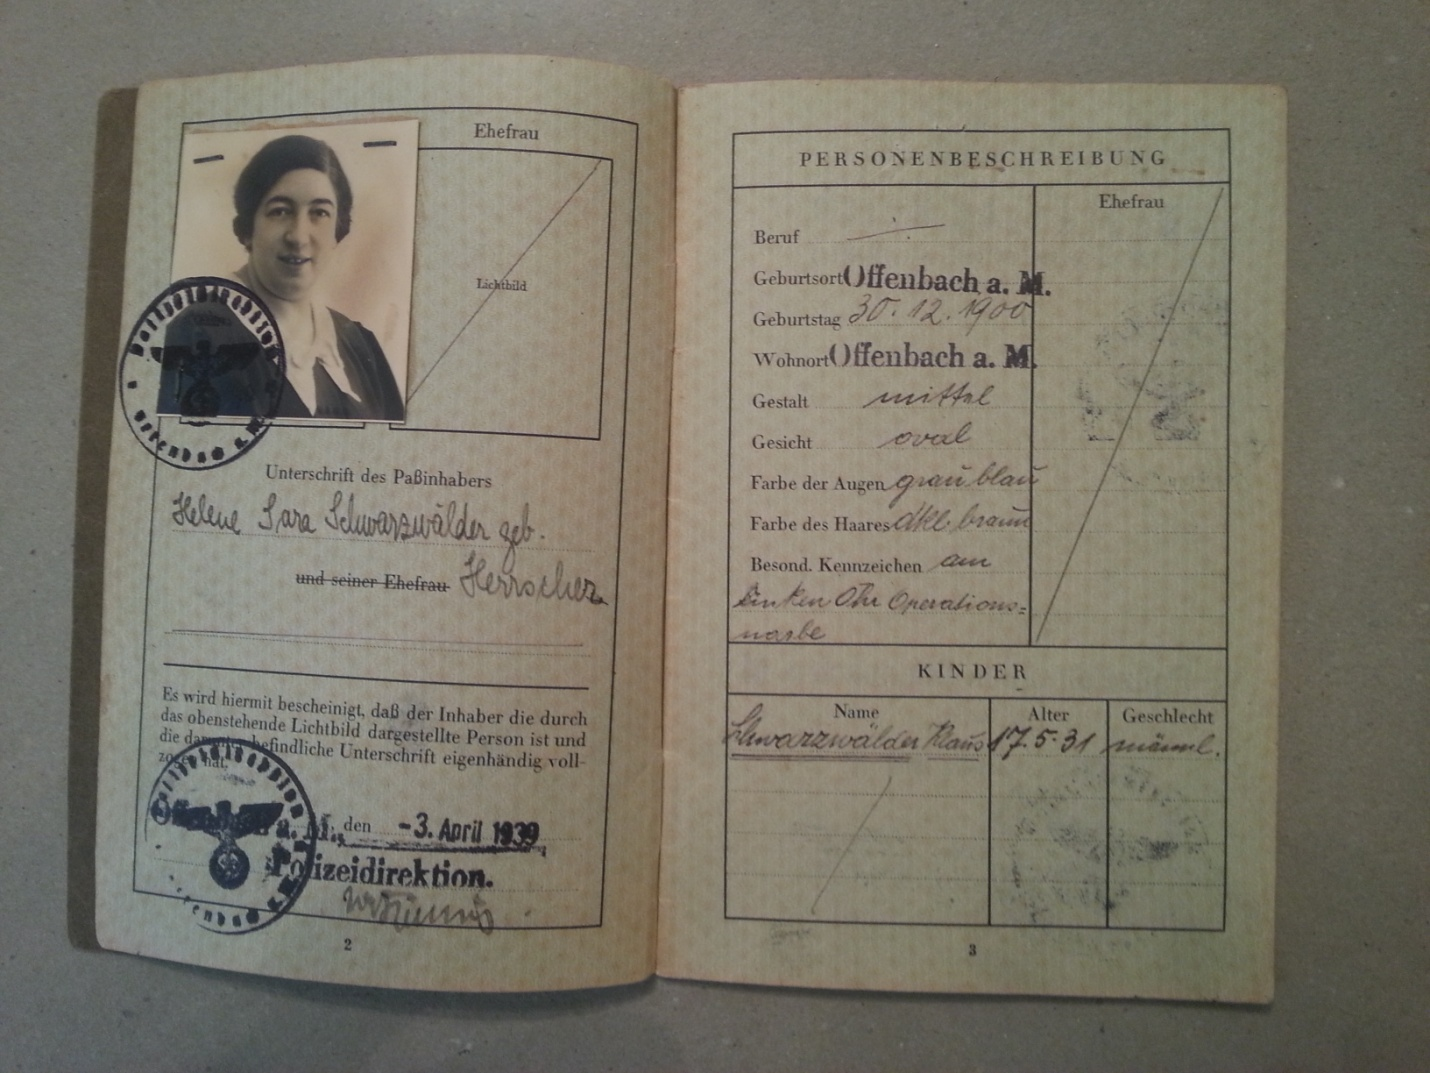 Ehefrau
Lichtbild
Unterschrift des Paßinhabers
Helene Sara Schwarzwälder geb.
und seiner Ehefrau Herrscher
Es wird hiermit bescheinigt, daß der Inhaber die durch
das obenstehende Lichtbild dargestellte Person ist und
die darunter befindliche Unterschrift eigenhändig voll-
zogen hat.
a. M., den -3. April 1939
Polizeidirektion.
2
PERSONENBESCHREIBUNG
Ehefrau
Beruf
Geburtsort Offenbach a. M.
Geburtstag 30.12.1900
Wohnort Offenbach a. M.
Gestalt mittel
Gesicht oval
Farbe der Augen graublau
Farbe des Haares dkl. braun
Besond. Kennzeichen am
linken Ohr Operations=
narbe
KINDER
Name Alter Geschlecht
Schwarzwälder Klaus 17.5.31 männl.
3